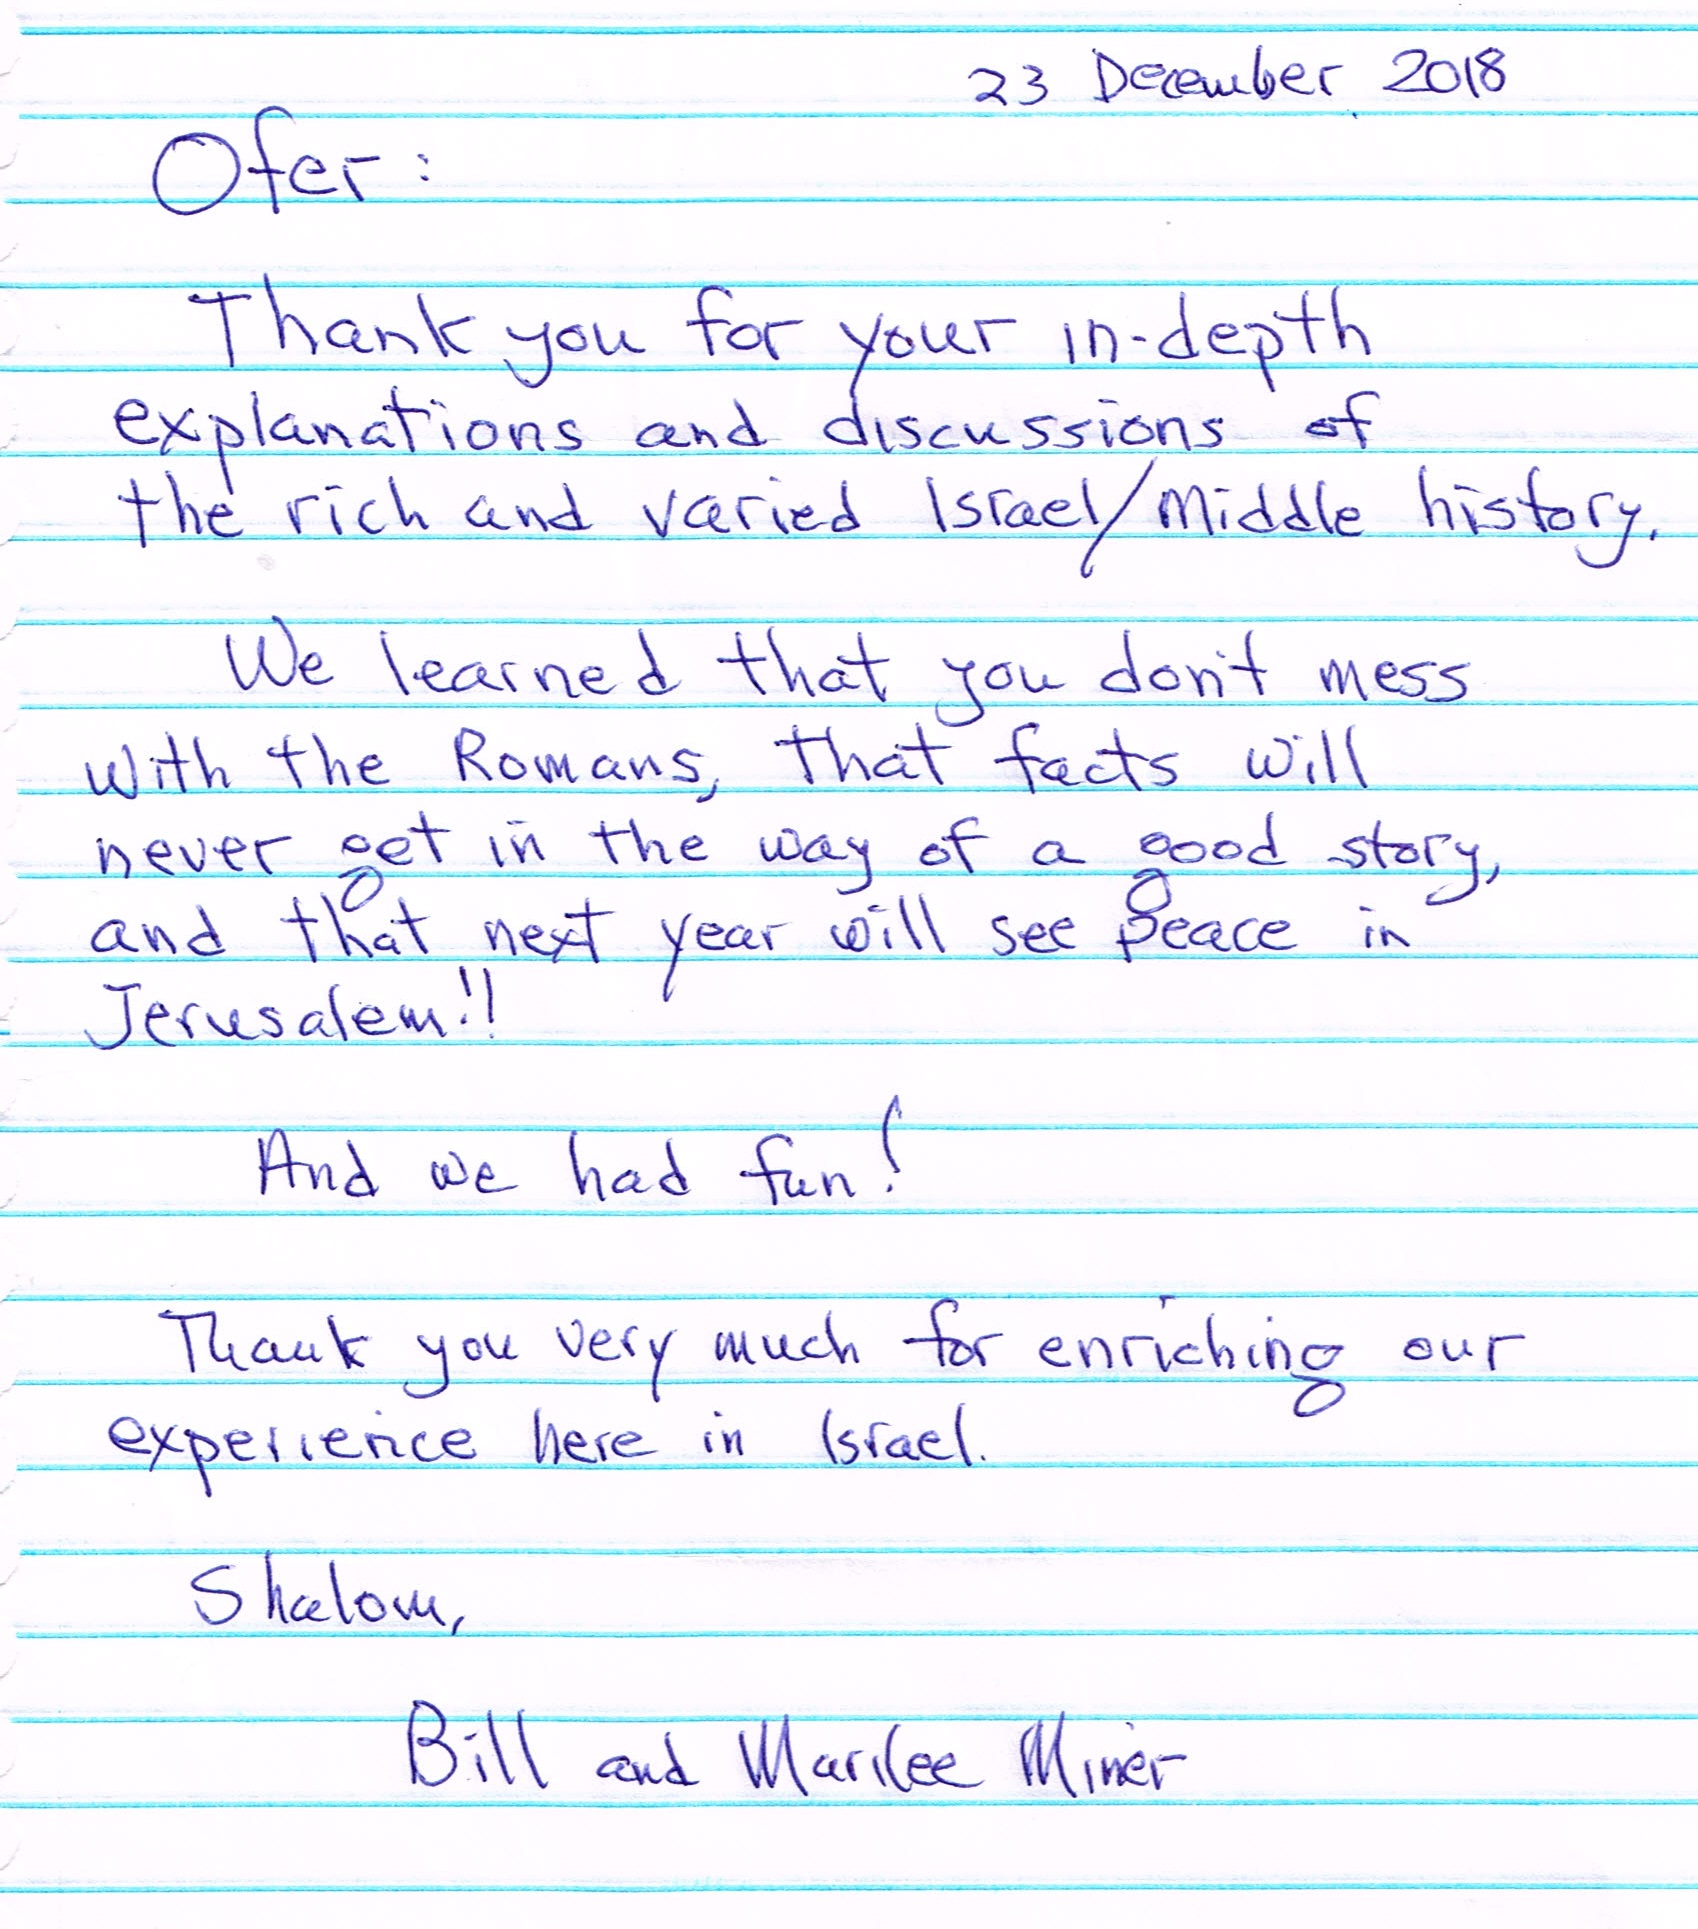 23 December 2018
Ofer:
Thank you for your in-depth
explanations and discussions of
the rich and varied Israel/Middle history.
We learned that you don't mess
with the Romans, that facts will
never get in the way of a good story,
and that next year will see peace in
Jerusalem!!
And we had fun!
Thank you very much for enriching our
experience here in Israel.
Shalom,
Bill and Marilee Miner